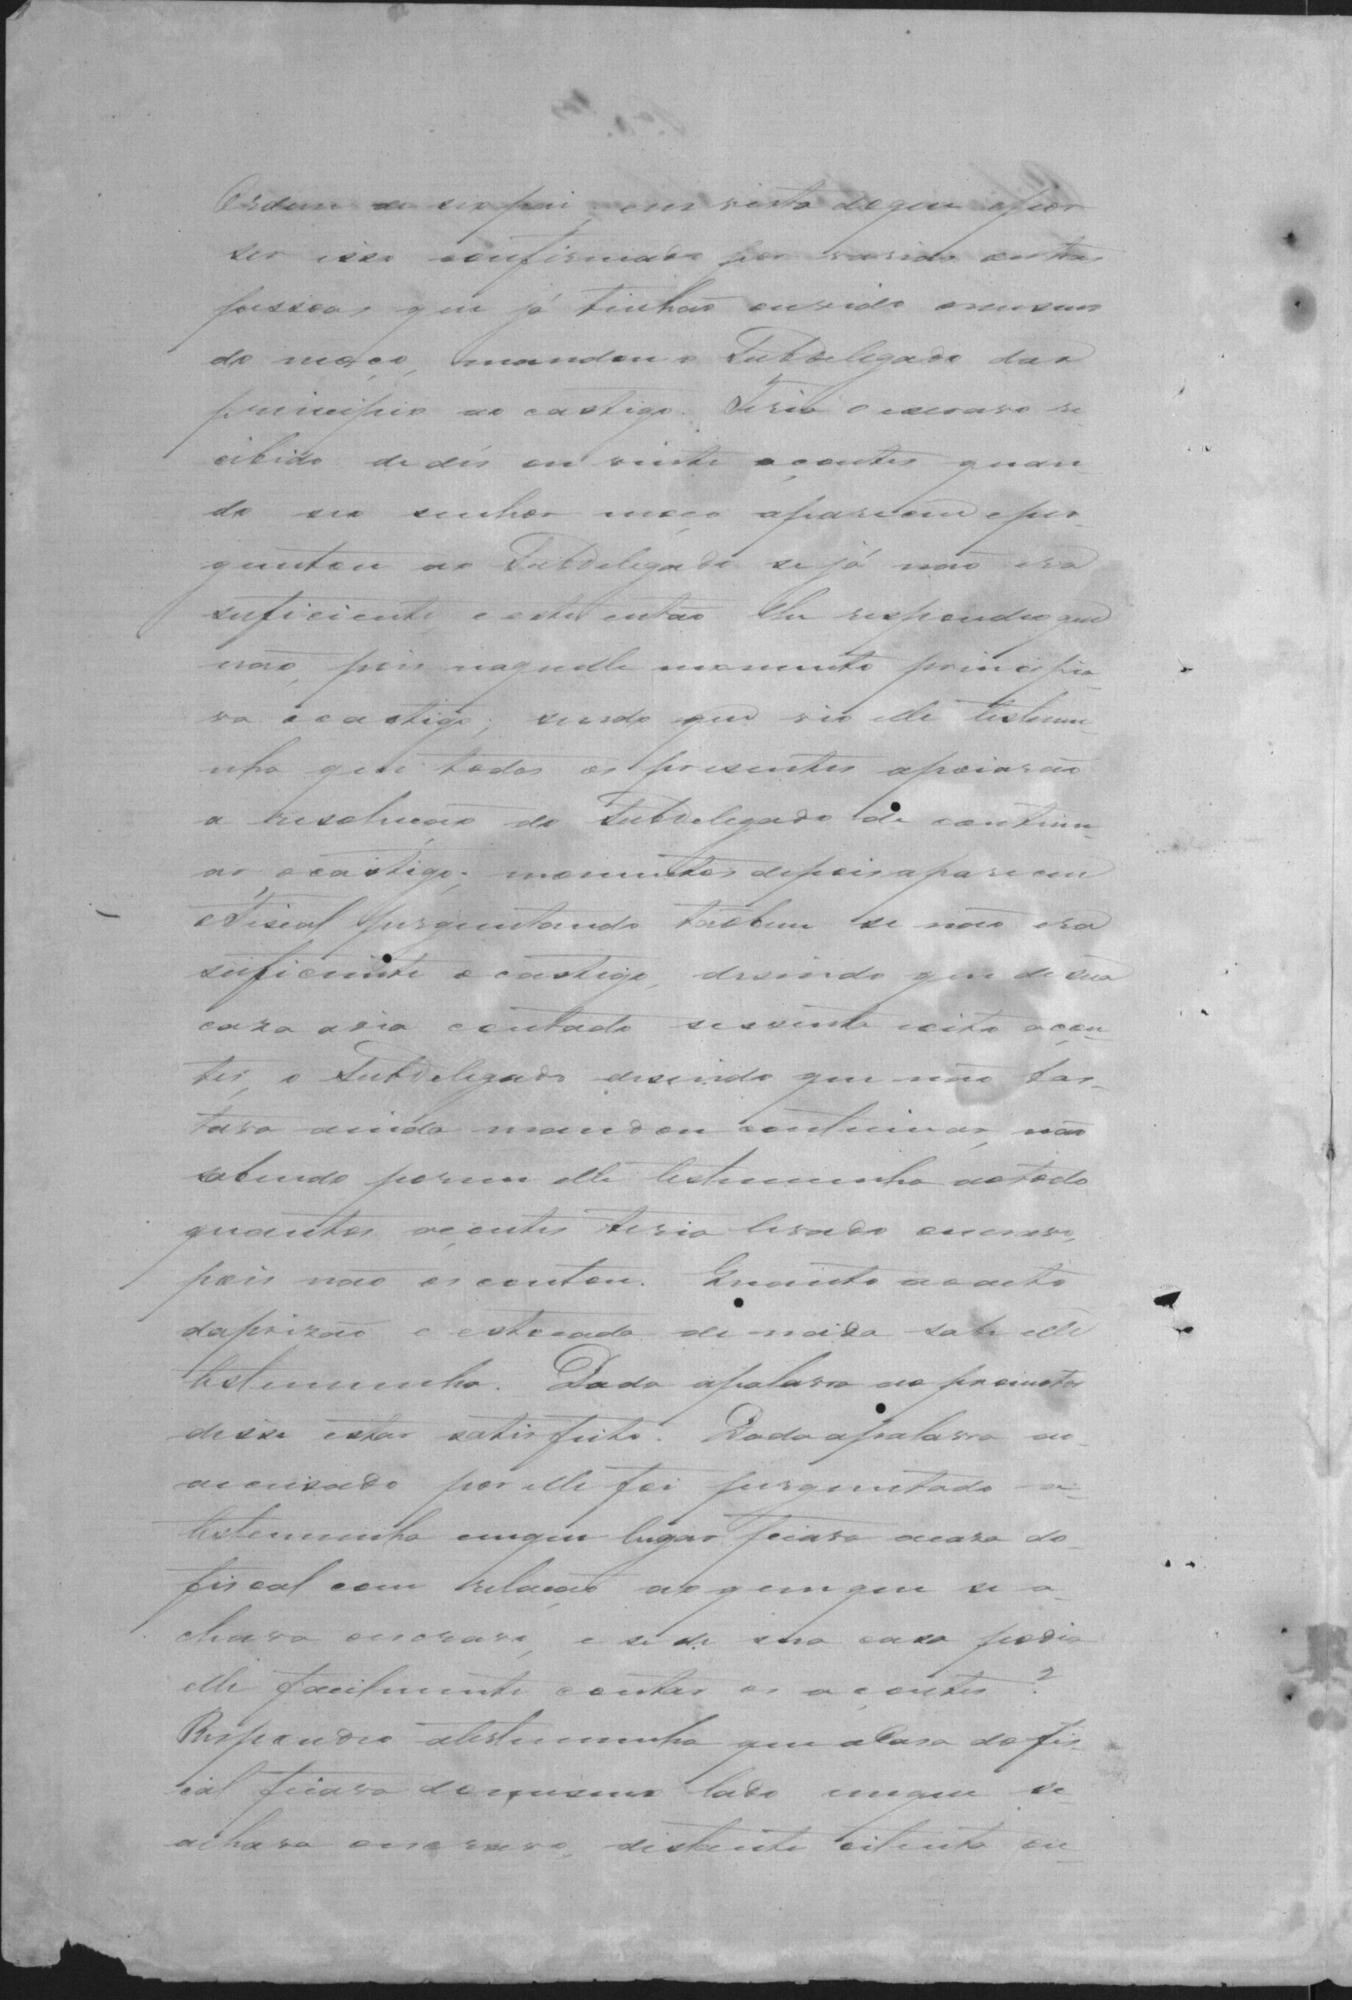 Ordem de seo pai, em vista do que e por
ser isso confirmado por varias outras
pessoas que já tinhão ouvido o mesmo
do moço, mandou o Subdelegado dar
principio ao castigo. Teria o escravo re
cibido de dés ou vinte açoutes quan-
do seo senhor moço apareceu e per-
guntou ao Subdelegado se já não era
suficiente e este entao lhe respondeo que
não, pois naquelle momento principia-
va o castigo; sendo que vio elle testemu-
nha que todos os presentes apoiarão
a resolução do Subdelegado de continu-
ar o castigo; momentos depois apareceu
o Fiscal perguntando tãobem se não era
suficiente o castigo, disendo que de sua
caza avia contado sesenta e oito açou-
tes, o Subdelegado disendo que não bas-
tava ainda mandou continuar, não
sabendo porem elle testemunha ao todo
quantos açoutes teria levado o escravo,
pois não os contou. Quanto ao acto
da prizão e estocada de nada sabe elle
testemunha. Dada a palavra ao promotor
disse estar satisfeito. Dada a palavra ao
acusado por elle foi perguntado a
testemunha em que lugar ficava a caza do
fiscal com relação ao em que se a-
chava o escravo, e se de sua casa podia
elle facilmente contar os açoutes?
Respondeo a testemunha que a Casa do fis-
cal ficava do mesmo lado em que se
achava o escravo, distante oitenta ou